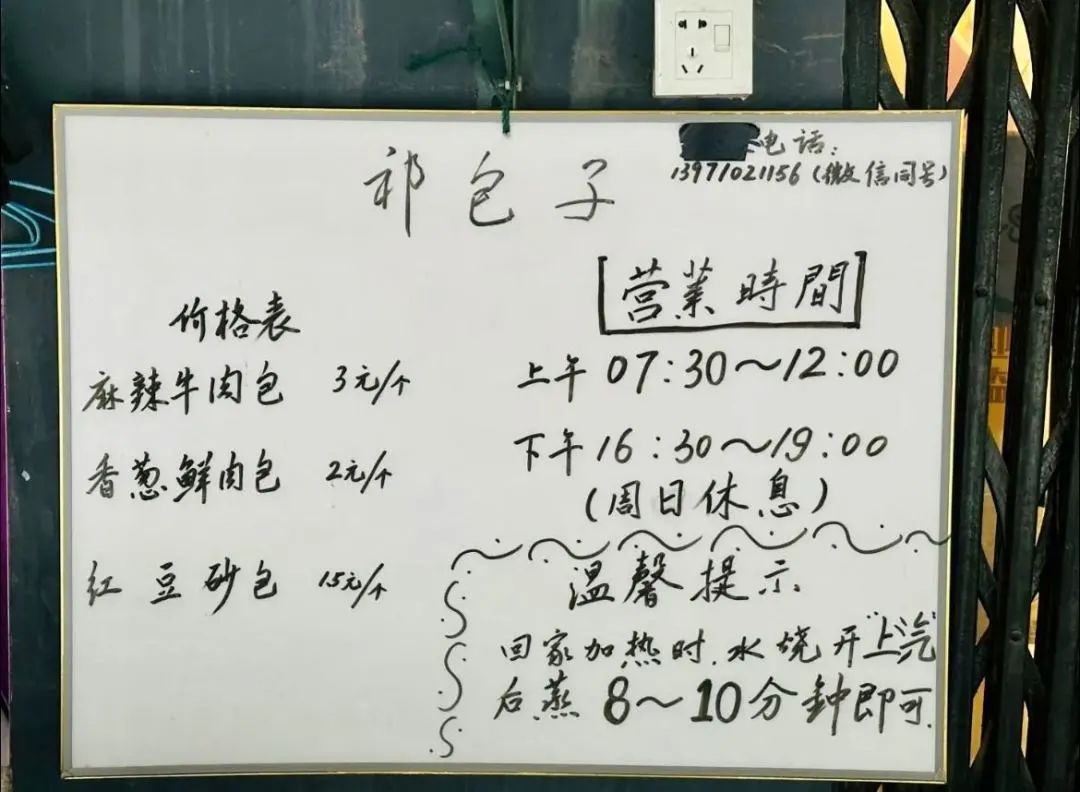 祁包子
电话:
13971021156(微信同号)
价格表
麻辣牛肉包 3元/个
香葱鲜肉包 2元/个
红豆砂包 1.5元/个
营業時間
上午 07:30~12:00
下午 16:30~19:00
(周日休息)
温馨提示
回家加热时.水烧开"上汽"
后蒸 8~10分鈡即可.